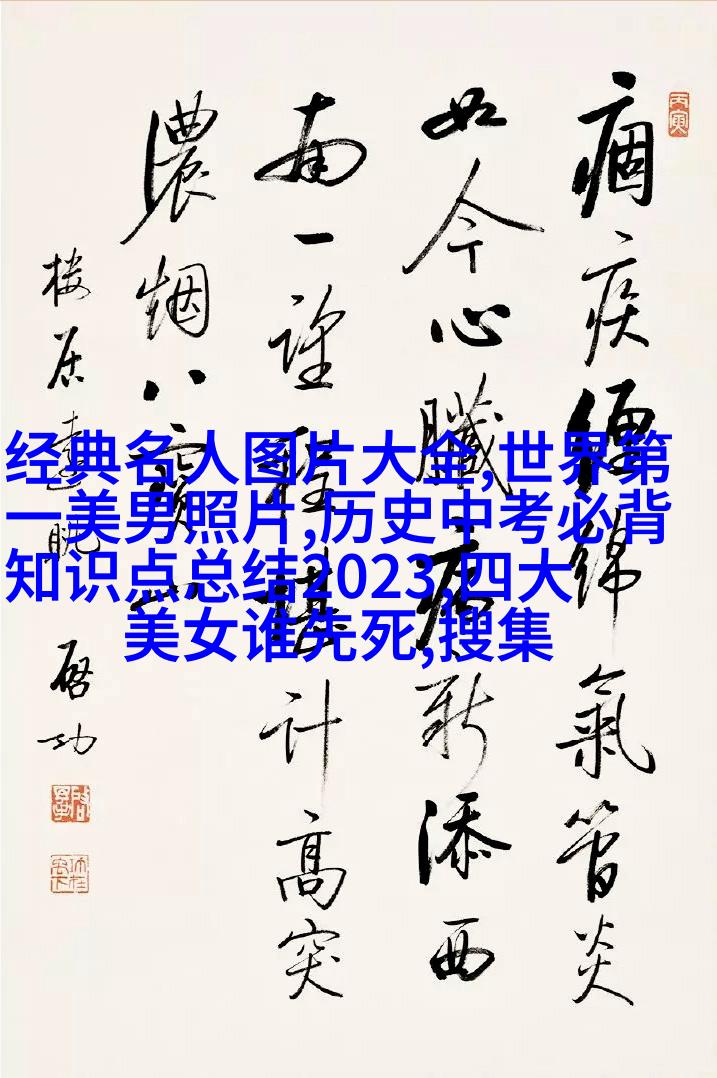 丙寅
痼疾綿氣管炎
如今心臟病新添西
南一望程堪計高突
濃烟八寶山
樓居遠眺 啓功
经典名人图片大全,世界第
一美男照片,历史中考必背
知识点总结2023,四大
美女谁先死,搜集